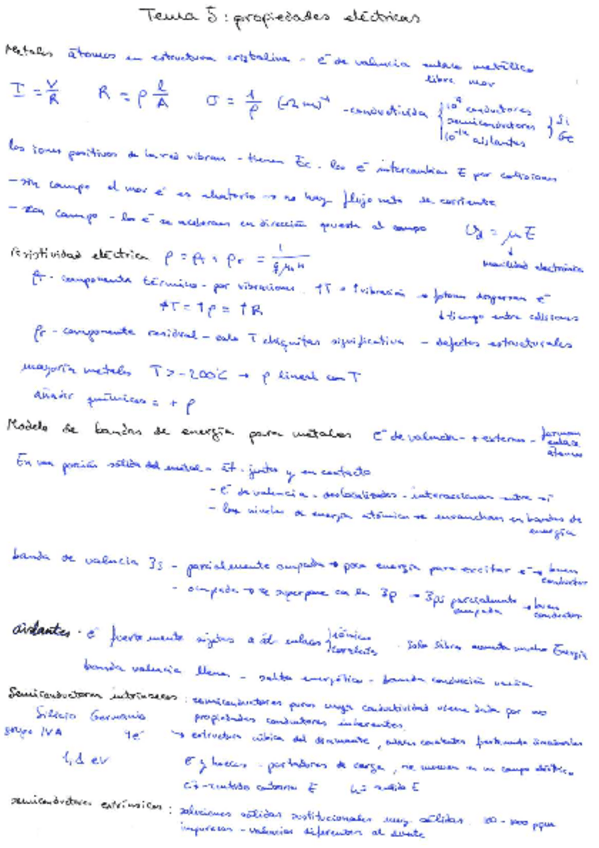 Tema 5: propiedades eléctricas
Metales átomos en estructura cristalina - é de valencia enlace metálico
libre mov
I = V/R R = ρ l/A σ = 1/ρ (Ωm)⁻¹ - conductividad conductores
semiconductores } Si
aislantes Ge
los iones positivos de la red vibran - tienen Ec - los é intercambian E por colisiones
- sin campo el mov é es aleatorio → no hay flujo neto de corriente
- con campo - los é se aceleran en dirección opuesta al campo υd = μE
movilidad electrónica
resistividad eléctrica ρ = ρt + ρr
ρt - componente térmico - por vibraciones ↑T = ↑vibración → fonones dispersan é
↑T = ↑ρ = ↑R ↓ tiempo entre colisiones
ρr - componente residual - solo T chiquitas significativa - defectos estructurales
mayoría metales T > -200ºC → ρ lineal con T
añadir químicos = + ρ
Modelo de bandas de energía para metales é de valencia - + externos - forman
enlace
átomos
En una porción sólida del metal - át. juntos y en contacto
- é de valencia - deslocalizados - interaccionan entre sí
- los niveles de energía atómica se ensanchan en bandas de
energía
banda de valencia 3s - parcialmente ocupada → poca energía para excitar é → buen
conductor
- ocupada → se superpone con la 3p → 3ps parcialmente
ocupada → buen
conductor
aislantes - é fuertemente sujetos a át. enlaces } iónicos
covalentes
banda valencia llena - salto energético - banda conducción vacía
Semiconductores intrínsecos: semiconductores puros cuya conductividad viene dada por sus
propiedades conductoras inherentes.
Silicio Germanio
grupo IVA 4é → estructura cúbica del diamante, enlaces covalentes
1,1 eV é y huecos - portadores de carga, se mueven en un campo eléctrico
é - sentido contrario E
semiconductores extrínsecos: soluciones sólidas sustitucionales muy sólidas 100 - 1000 ppm
impurezas - valencias diferentes al